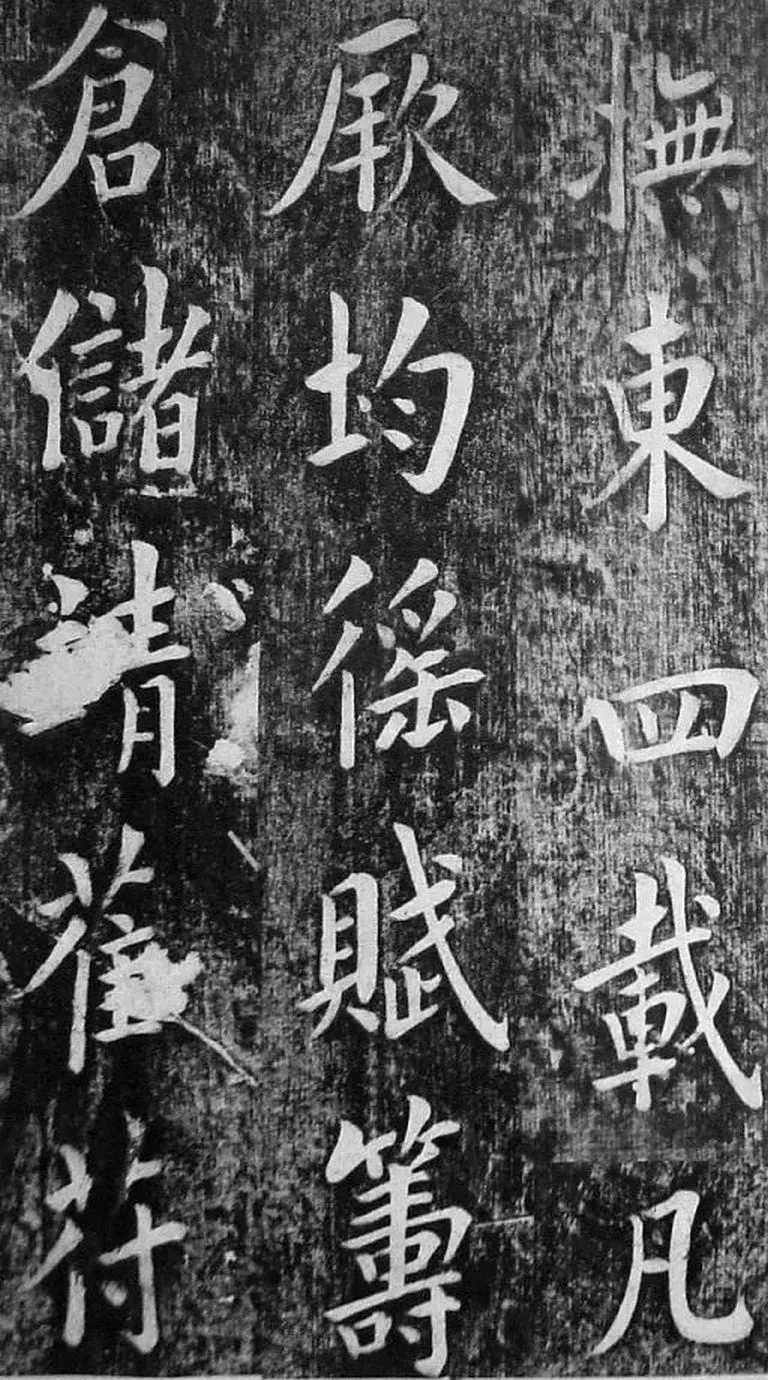 撫東四載凡
厥均徭賦籌
倉儲清萑苻